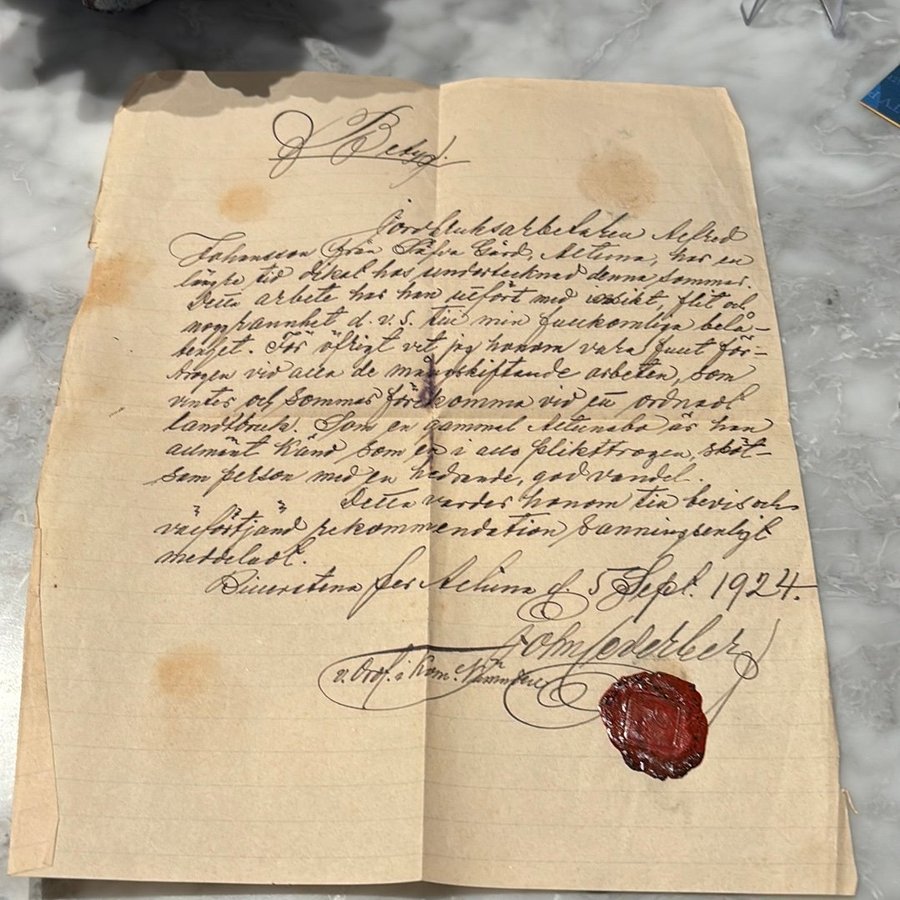 Betyg.
Jordbruksarbetaren Alfred
Johansson från Säfva Gård, Altuna, har en
längre tid dikat hos undertecknad denna sommar.
Detta arbete har han utfört med insikt, flit och
noggrannhet d.v.s. till min fullkomliga belå-
tenhet. För öfrigt vet jag honom vara fullt för-
trogen vid alla de mångskiftande arbeten, som
vinter och sommar förekomma vid en ordnadt
landtbruk. Som en gammal Altunabo är han
allmänt känd som en i allo plikttrogen, sköt-
sam person med en hedrande, god vandel.
Detta varder honom till bevis och
välförtjänd rekommendation sanningsenligt
meddeladt.
per Altuna d. 5 Sept. 1924.
John Cederberg
v. Ordf. i Kom. Nämnden